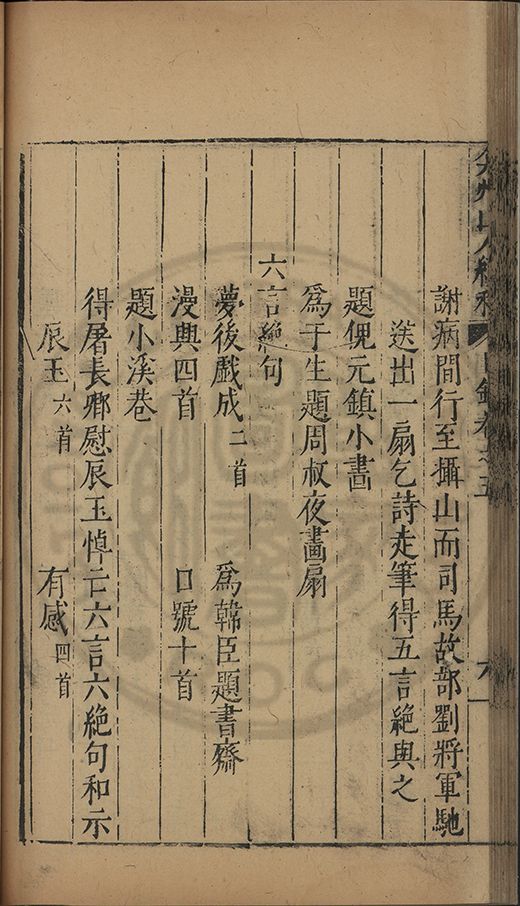 謝病間行至攝山而司馬故部劉將軍馳
送出一扇乞詩走筆得五言絶與之
題倪元鎮小畫
為于生題周叔夜畫扇
六言絶句
夢後戲成二首 為韓臣題書齋
漫興四首 口號十首
題小溪巷
得屠長卿慰辰玉悼亡六言六絶句和示
辰玉六首 有感四首